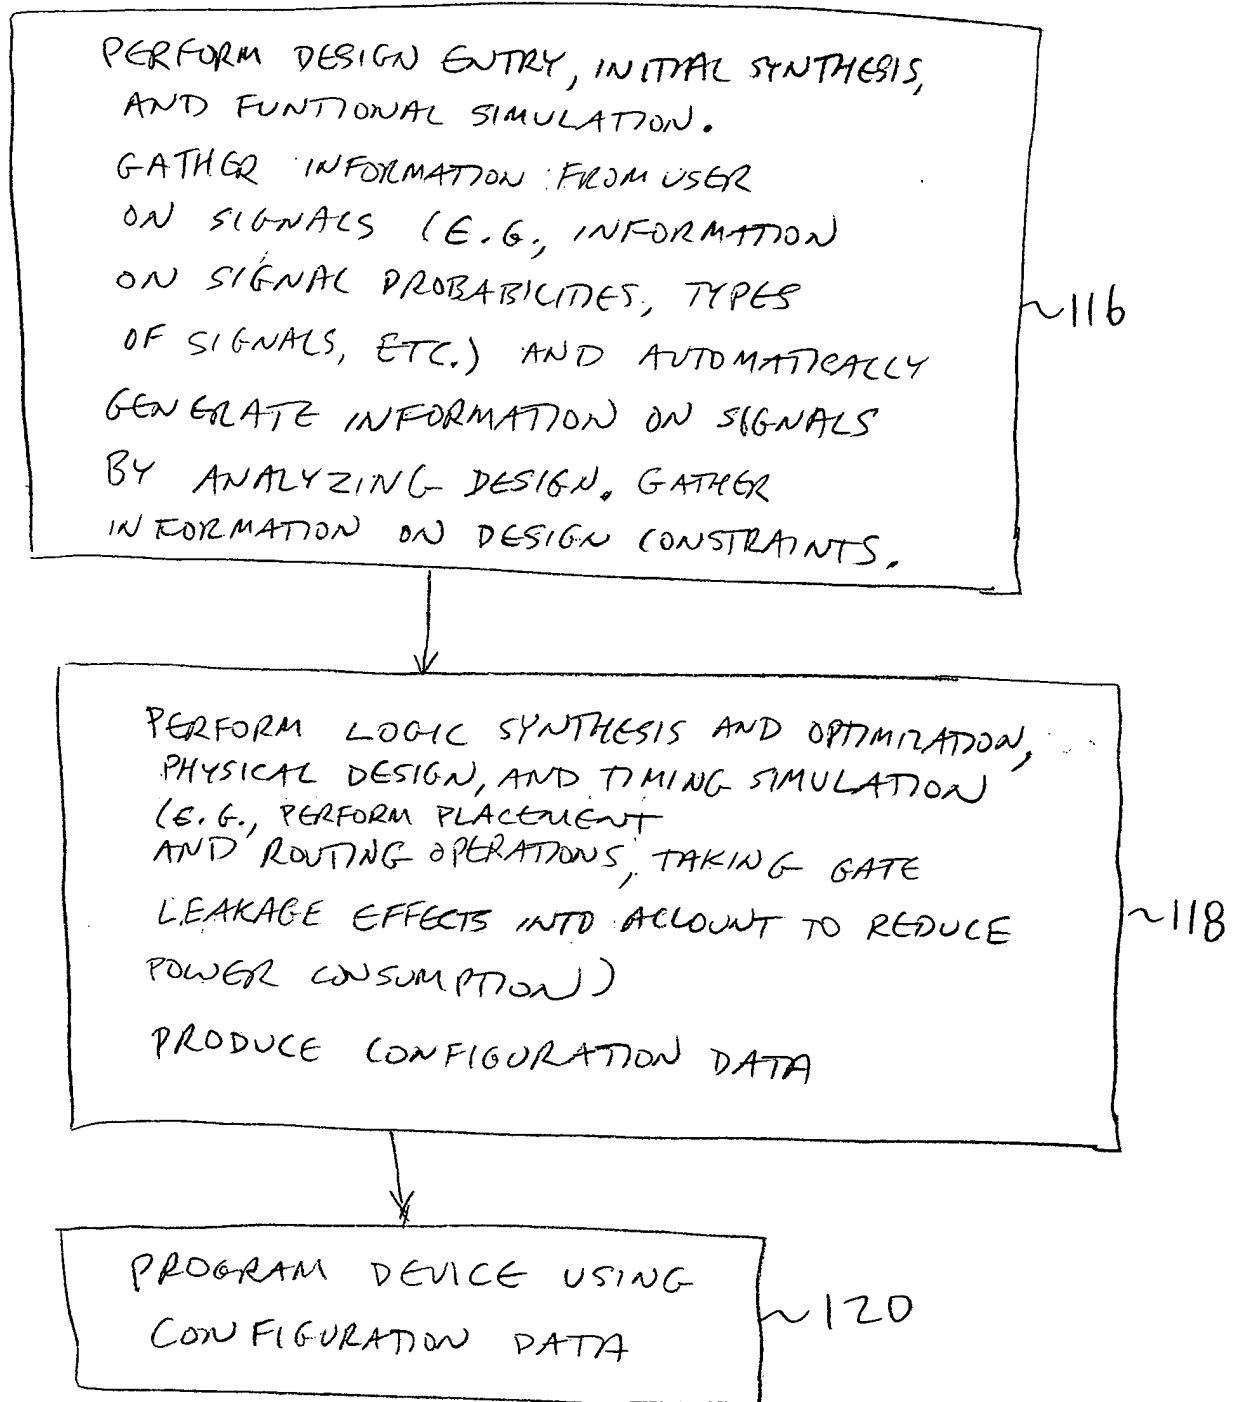 PERFORM DESIGN ENTRY, INITIAL SYNTHESIS,
AND FUNTIONAL SIMULATION.
GATHER INFORMATION FROM USER
ON SIGNALS (E.G., INFORMATION
ON SIGNAL PROBABILITIES, TYPES
OF SIGNALS, ETC.) AND AUTOMATICALLY
GENERATE INFORMATION ON SIGNALS
BY ANALYZING DESIGN. GATHER
INFORMATION ON DESIGN CONSTRAINTS.
~116
PERFORM LOGIC SYNTHESIS AND OPTIMIZATION,
PHYSICAL DESIGN, AND TIMING SIMULATION
(E.G., PERFORM PLACEMENT
AND ROUTING OPERATIONS, TAKING GATE
LEAKAGE EFFECTS INTO ACCOUNT TO REDUCE
POWER CONSUMPTION)
PRODUCE CONFIGURATION DATA
~118
PROGRAM DEVICE USING
CONFIGURATION DATA
~120